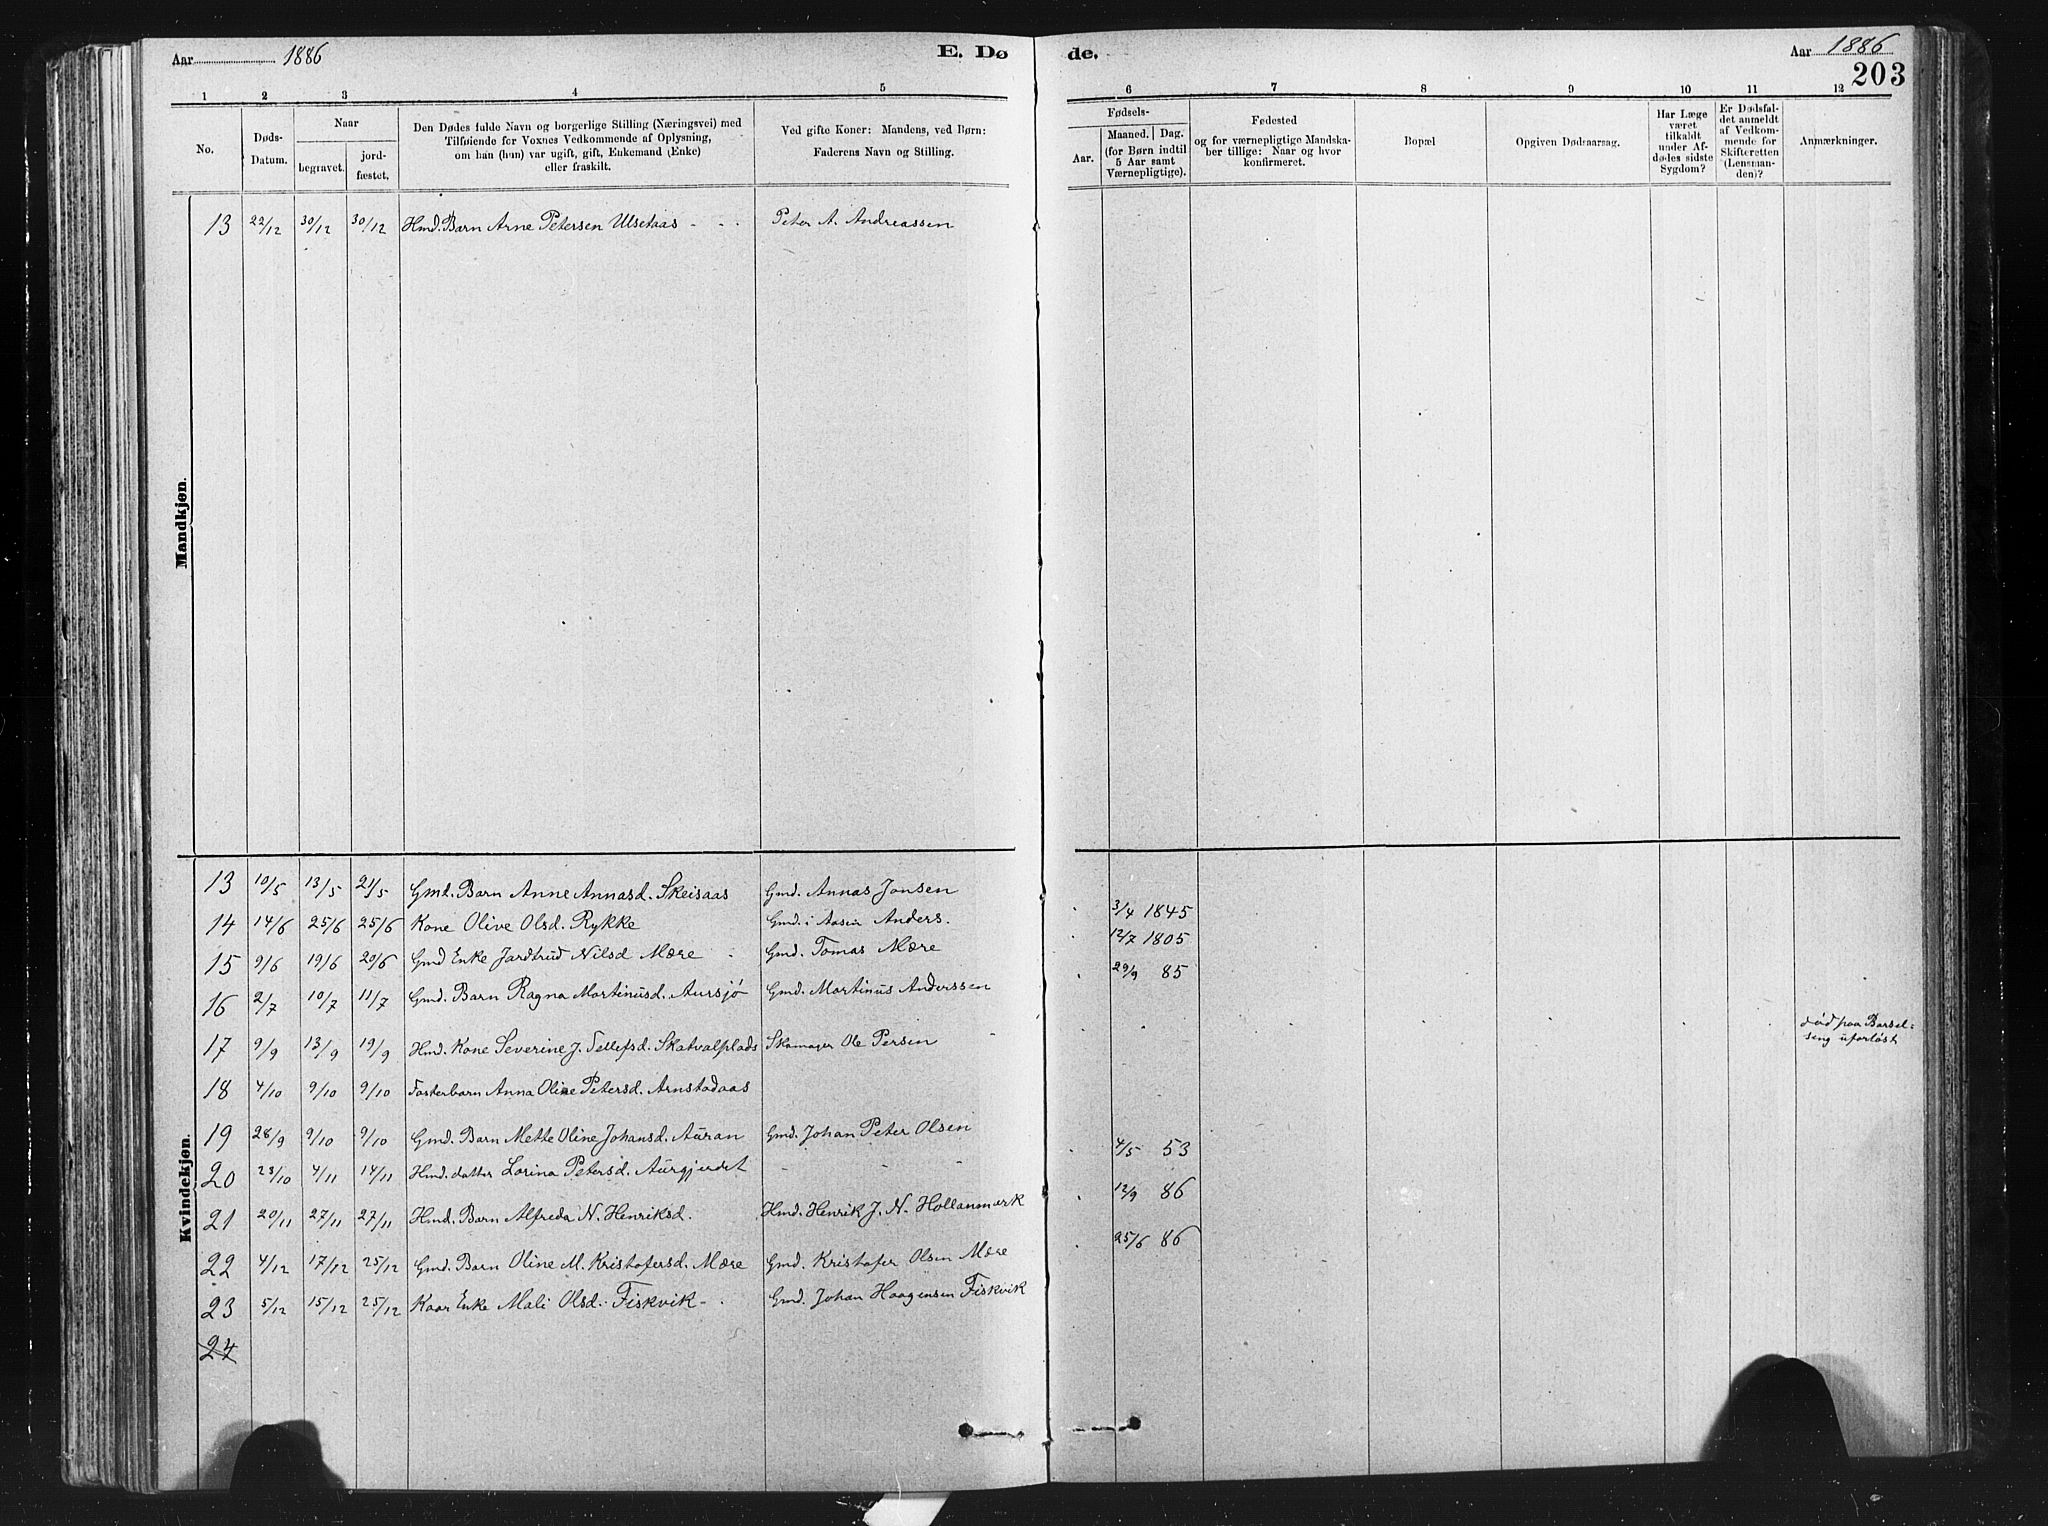 Aar 1886
E. Dø
de.
Aar 1886
203
1 2 3 4 5
6 7 8 9 10 11 12
No.
Døds-
Datum.
Naar
begravet.
jord-
fæstet.
Den Dødes fulde Navn og borgerlige Stilling (Næringsvei) med
Tilføiende for Voxnes Vedkommende af Oplysning,
om han (hun) var ugift, gift, Enkemand (Enke)
eller fraskilt.
Ved gifte Koner: Mandens, ved Børn:
Faderens Navn og Stilling.
Fødsels-
Aar.
Maaned. Dag.
(for Børn indtil
5 Aar samt
Værnepligtige).
Fødested
og for værnepligtige Mandska-
ber tillige: Naar og hvor
konfirmeret.
Bopæl
Opgiven Dødsaarsag.
Har Læge
været
tilkaldt
under Af-
dødes sidste
Sygdom?
Er Dødsfal-
det anmeldt
af Vedkom-
mende for
Skifteretten
(Lensman-
den)?
Anmærkninger.
Mandkjøn.
13 22/12 30/12 30/12 Hmd. Barn Arne Petersen Ulsetaas - - - Peter A. Andreassen
Kvindekjøn.
13 10/5 13/5 21/5 Gmd. Barn Anne Annasd. Skeisaas Gmd. Annas Jonsen
14 14/6 25/6 25/6 Kone Olive Olsd. Rykke Gmd. i Aasen Anders. 3/4 1845
15 9/6 19/6 20/6 Gmd Enke Jardtrud Nilsd Mære Gmd. Tomas Mære 12/7 1805
16 2/7 10/7 11/7 Gmd. Barn Ragna Martinusd. Aursjö Gmd. Martinus Anderssen 29/9 85
17 9/9 13/9 19/9 Hmd. Kone Severine J. Tellefsd. Skatvalplads Skomager Ole Persen død paa Barsel-
seng uforløst
18 4/10 9/10 9/10 Fosterbarn Anna Oline Petersd. Arnstadaas
19 28/9 9/10 9/10 Gmd. Barn Mette Oline Johansd. Auran Gmd. Johan Peter Olsen
20 23/10 4/11 14/11 Hmd. datter Lorina Petersd. Aurgjerdet - - - 4/5 53
21 20/11 27/11 27/11 Hmd. Barn Alfreda N. Henriksd. Hmd. Henrik J. N. Hollanmark 12/9 86
22 4/12 17/12 25/12 Gmd. Barn Oline M. Kristofersd. Mære Gmd. Kristofer Olsen Mære 25/6 86
23 5/12 15/12 25/12 Kaar Enke Mali Olsd. Fiskvik - Gmd. Johan Haagensen Fiskvik
24